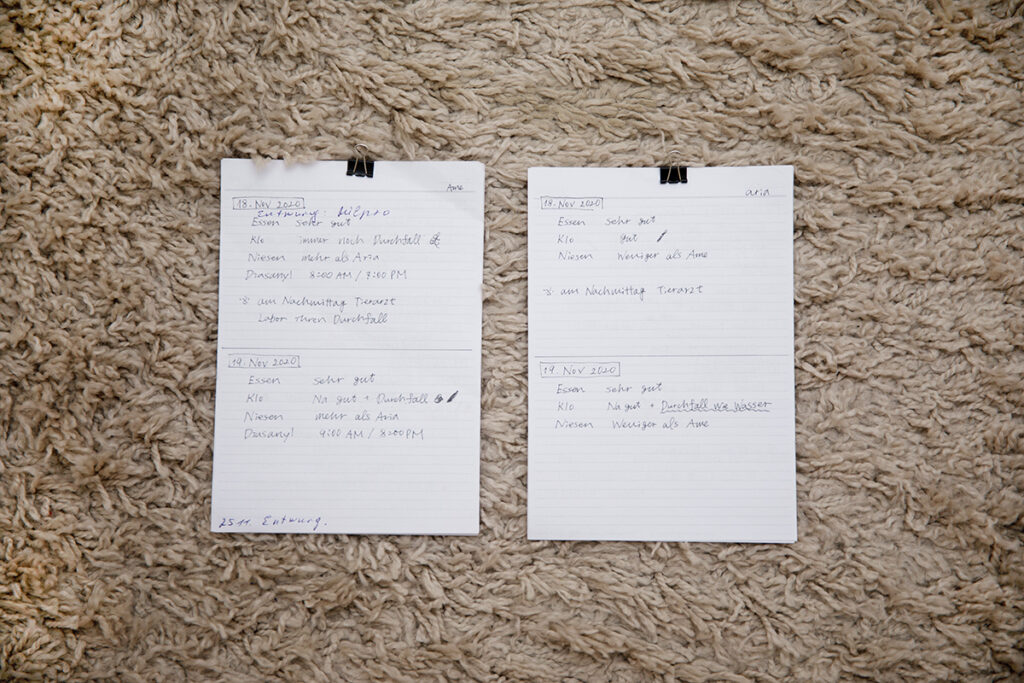 Ame
18. Nov 2020
Entwurg: Milpro
Essen sehr gut
Klo immer noch Durchfall
Niesen mehr als Aria
8:00 AM / 7:00 PM
am Nachmittag Tierarzt
Labor Durchfall
19. Nov 2020
Essen sehr gut
Klo Na gut + Durchfall
Niesen mehr als Aria
9:00 AM / 8:00 PM
25 11. Entwurg.
aria
18. Nov 2020
Essen sehr gut
Klo gut
Niesen Weniger als Ame
am Nachmittag Tierarzt
19. Nov 2020
Essen sehr gut
Klo Na gut + Durchfall wie Wasser
Niesen Weniger als Ame